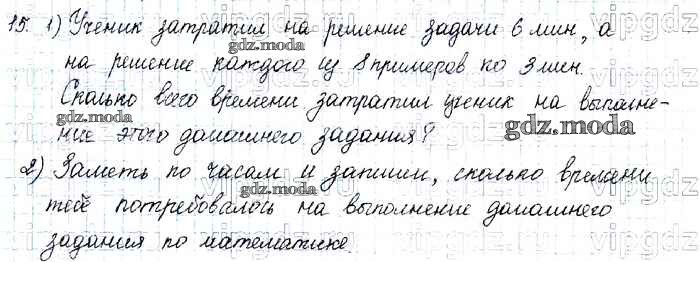 15. 1) Ученик затратил на решение задачи 6 мин, а
на решение каждого из 8 примеров по 3 мин.
Сколько всего времени затратил ученик на выполне-
ние этого домашнего задания?
2) Заметь по часам и запиши, сколько времени
тебе потребовалось на выполнение домашнего
задания по математике.
gdz.moda
gdz.moda
gdz.moda
gdz.moda
gdz.moda
vipgdz